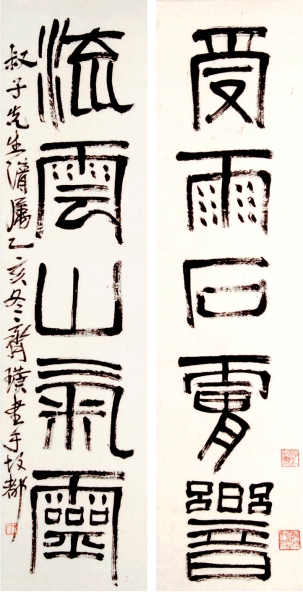 受雨石膚響
流雲山氣靈
叔子先生清屬乙亥冬齊璜書于故都